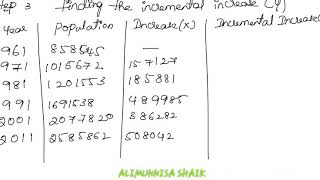 tep 3 finding the incremental increase (Y)
Year Population Increase(x) Incremental Increase
961 858545 —
971 1015672 157127
981 1201553 185881
991 1691538 489985
2001 2077820 386282
2011 2585862 508042
ALIMUNNISA SHAIK